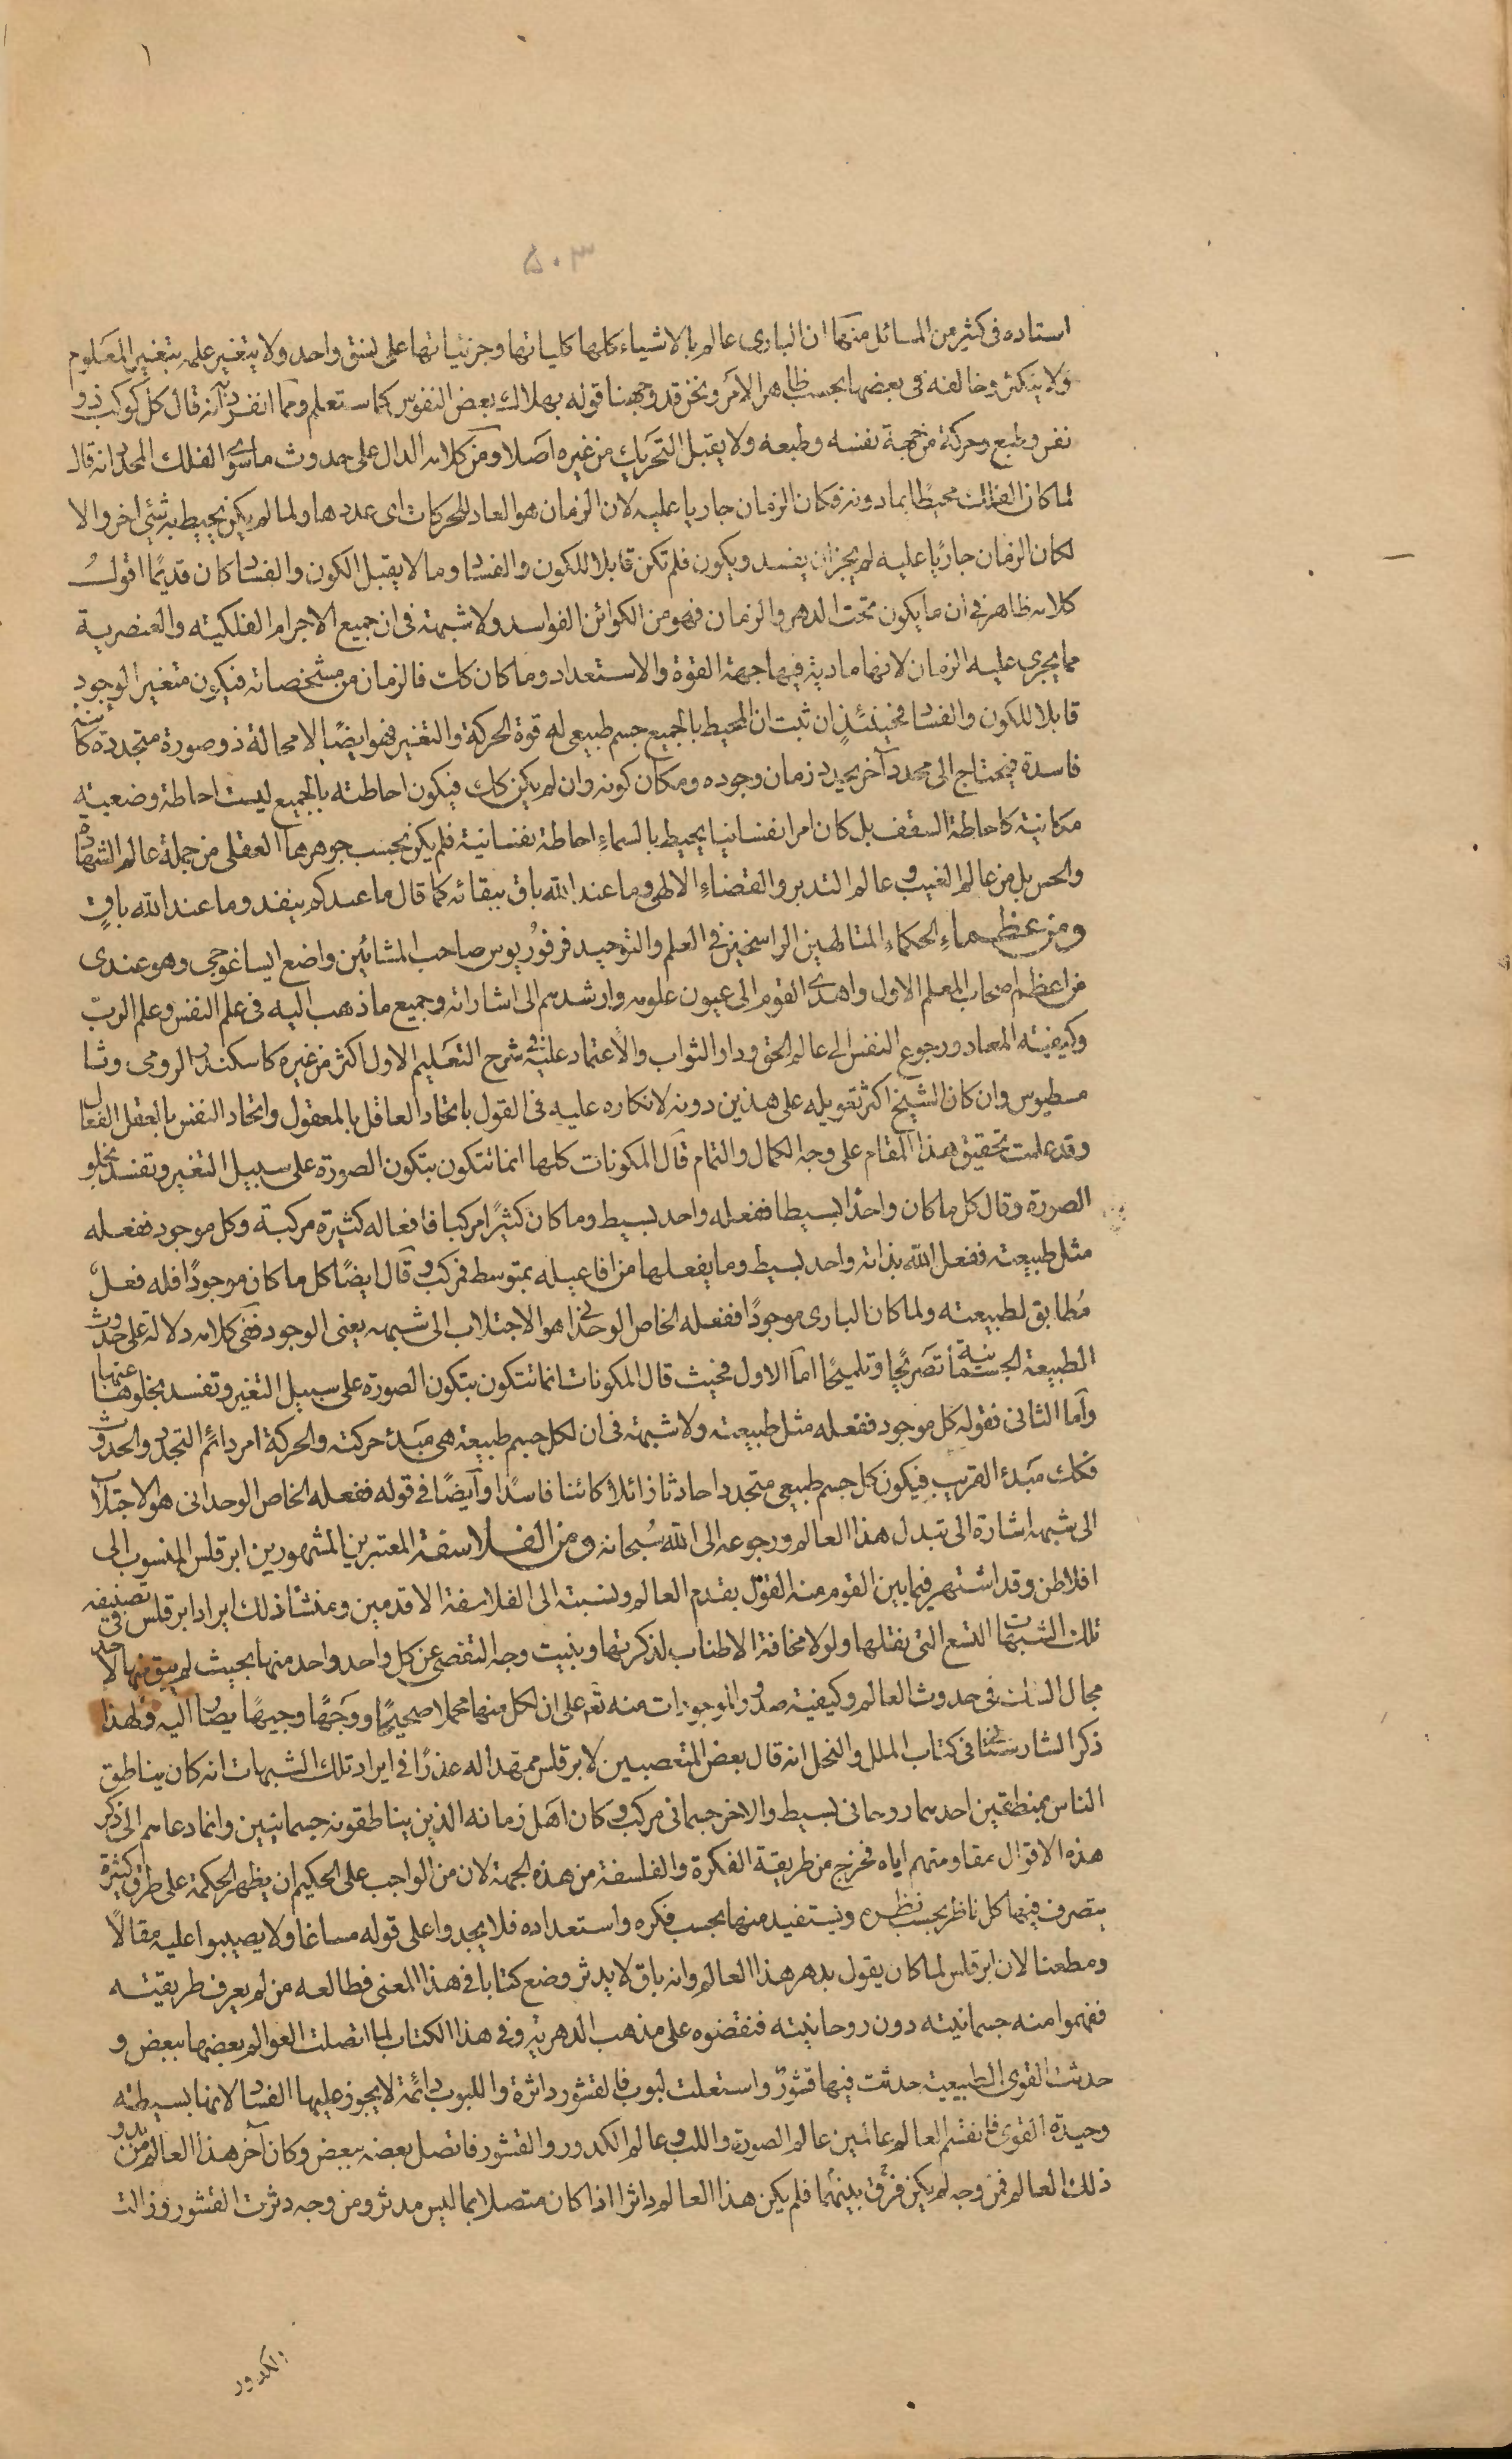 ١
٥٠٣
استاده فى كثير من المسائل منها ان البارى عالم بالاشياء كلها كلياتها وجزئياتها على نسق واحد ولا يتغير علمه بتغير المعلوم
ولا يتكثر وخالفه فى بعضها بحسب ظاهر الامر ونحن قد وجهنا قوله بهلاك بعض النفوس كما ستعلم ومما انفرد به انه قال كل كوكب ذو
نفس وطبع وحركة من جهة نفسه وطبعه ولا يقبل التحريك من غيره اصلا ومن كلامه الدال على حدوث ماسوى الفلك المحدد انه قال
لما كان الفلك محيطًا بما دونه فكان الزمان جاريا عليه لان الزمان هو العاد للحركات اى عددها ولما لم يكن يحيط به شئ اخر والا
لكان الزمان جاريًا عليه لم يجز ان يفسد ويكون فلم تكن قابلا للكون والفساد وما لا يقبل الكون والفساد كان قديمًا اقولُ
كلامه ظاهر فى ان ما يكون تحت الدهر والزمان فهو من الكوائن الفواسد ولا شبهة فى ان جميع الاجرام الفلكيته والعنصرية
مما يجرى عليه الزمان لانها مادية فيها جهة القوة والاستعداد وما كان كك فالزمان من مشخصاته فيكون متغير الوجود
قابلا للكون والفساد فحينئذٍ ان ثبت ان المحيط بالجميع جسم طبيعى له قوة الحركة والتغير فهو ايضًا لا محالة ذو صورة متجددة كائنة
فاسدة فيحتاج الى محدد آخر يحدد زمان وجوده ومكان كونه وان لم يكن كك فيكون احاطته بالجميع ليست احاطة وضعيته
مكانية كاحاطة السقف بل كان امرا نفسانيا يحيط بالسماء احاطة نفسانية فلم يكن بحسب جوهرها العقلى من جملة عالم الشهادة
والحس بل من عالم الغيب و عالم التدبر والقضاء الالهى وما عند الله باق ببقائه كما قال ما عندكم ينفد وما عند الله باقٍ
ومن عظماء الحكماء المتالهين الراسخين فى العلم والتوحيد فرفوريوس صاحب المشائين واضع ايساغوجى وهو عندى
من اعظم اصحاب المعلم الاول واهدى القوم الى عيون علومه وارشدهم الى اشاراته وجميع ما ذهب اليه فى علم النفس وعلم الربّ
وكيفيته المعاد ورجوع النفس الى عالم الحق ودار الثواب والاعتماد عليه فى شرح التعليم الاول اكثر من غيره كاسكندر الرومى وثا
مسطيوس وان كان الشيخ اكثر تعويله على هذين دونه لانكاره عليه فى القول باتحاد العاقل بالمعقول واتحاد النفس بالعقل الفعال
وقد علمت تحقيق هذا المقام على وجه الكمال والتمام قال المكونات كلها انما تتكون بتكون الصورة على سبيل التغير وتفسد بخلو
الصورة وقال كل ما كان واحدًا بسيطا ففعله واحد بسيط وما كان كثيرًا مركبا فافعاله كثيرة مركبة وكل موجود ففعله
مثل طبيعته ففعل الله بذاته واحد بسيط وما يفعلها من افاعيله بمتوسط فمركب و قال ايضًا كل ما كان موجودًا فله فعلٌ
مُطابق لطبيعته ولما كان البارى موجودًا ففعله الخاص الوحدانى هو الاجتلاب الى شبهه يعنى الوجود ففى كلامه دلالة على حدوث
الطبيعة الجسمانية تصريحًا وتلميحًا اما الاول فحيث قال المكونات انما تتكون بتكون الصورة على سبيل التغير وتفسد بخلوها عنها
وآما الثانى فقوله كل موجود ففعله مثل طبيعته ولا شبهة فى ان لكل جسم طبيعة هى مبدء حركته والحركة امر دائم التجدد والحدوث
فكك مبدء القريب فيكون كل جسم طبيعى متجددا حادثا زائلا كائنا فاسدًا وآيضًا فى قوله ففعله الخاص الوحدانى هو الاجتلاب
الى شبهه اشارة الى تبدل هذا العالم ورجوعه الى الله سُبحانه ومن الفلاسفة المعتبرين المشهورين ابرقلس المنسوب الى
افلاطن وقد اشتهر فيما بين القوم منه القول بقدم العالم ونسبته الى الفلاسفة الاقدمين ومنشأ ذلك ايراد ابرقلس فى تصنيفه
تلك الشبهات التسع التى نقلها ولولا مخافة الاطناب لذكرتها وبنيت وجه التفصى عن كل واحد واحد منها بحيث لم يبق فيها لاحد
مجال الشك فى حدوث العالم وكيفيته صدور الموجودات منه تعم على ان لكل منها محملا صحيحًا ووَجهًا وجيهًا يصار اليه ولهذا
ذكر الشارستانى فى كتاب الملل والنحل انه قال بعض المتعصبين لابرقلس ممهدا له عذرًا فى ايراد تلك الشبهات انه كان يناطق
الناس بمنطقين احدهما روحانى بسيط والاخر جسمانى مركب و كان اهل زمانه الذين يناطقونه جسمانيين وانما دعاهم الى ذكر
هذه الاقوال مقاومتهم اياه فخرج من طريقة الفكرة والفلسفة من هذه الجهة لان من الواجب على الحكيم ان يظهر الحكمة على طرق كثيرة
يتصرف فيها كل ناظر بحسب نظره ويستفيد منها بحسب فكره واستعداده فلا يجدوا على قوله مساغا ولا يصيبوا عليه مقالًا
ومطعنا لان ابرقلس لما كان يقول بدهر هذا العالم وانه باق لا يدثر وضع كتابا فى هذا المعنى فطالعه من لم يعرف طريقيته
ففهموا منه جسمانيته دون روحانيته فنقضوه على مذهب الدهريه وفى هذا الكتاب لما اتصلت العوالم بعضها ببعض و
حدثت القوى الطبيعيت حدثت فيها قشورٌ واستعلت لبوب فالقشور داثرة واللبوب دائمة لا يجوز عليها الفساد لانها بسيطته
وحيدة القوى فانقسم العالم عالمين عالم الصورة واللب و عالم الكدور والقشور فاتصل بعضه ببعض وكان آخر هذا العالم من بدو
ذلك العالم فمن وجه لم يكن فرق بينهما فلم يكن هذا العالم داثرا اذا كان متصلا بما ليس مدثر ومن وجه دثرت القشور وزالت
الكدور